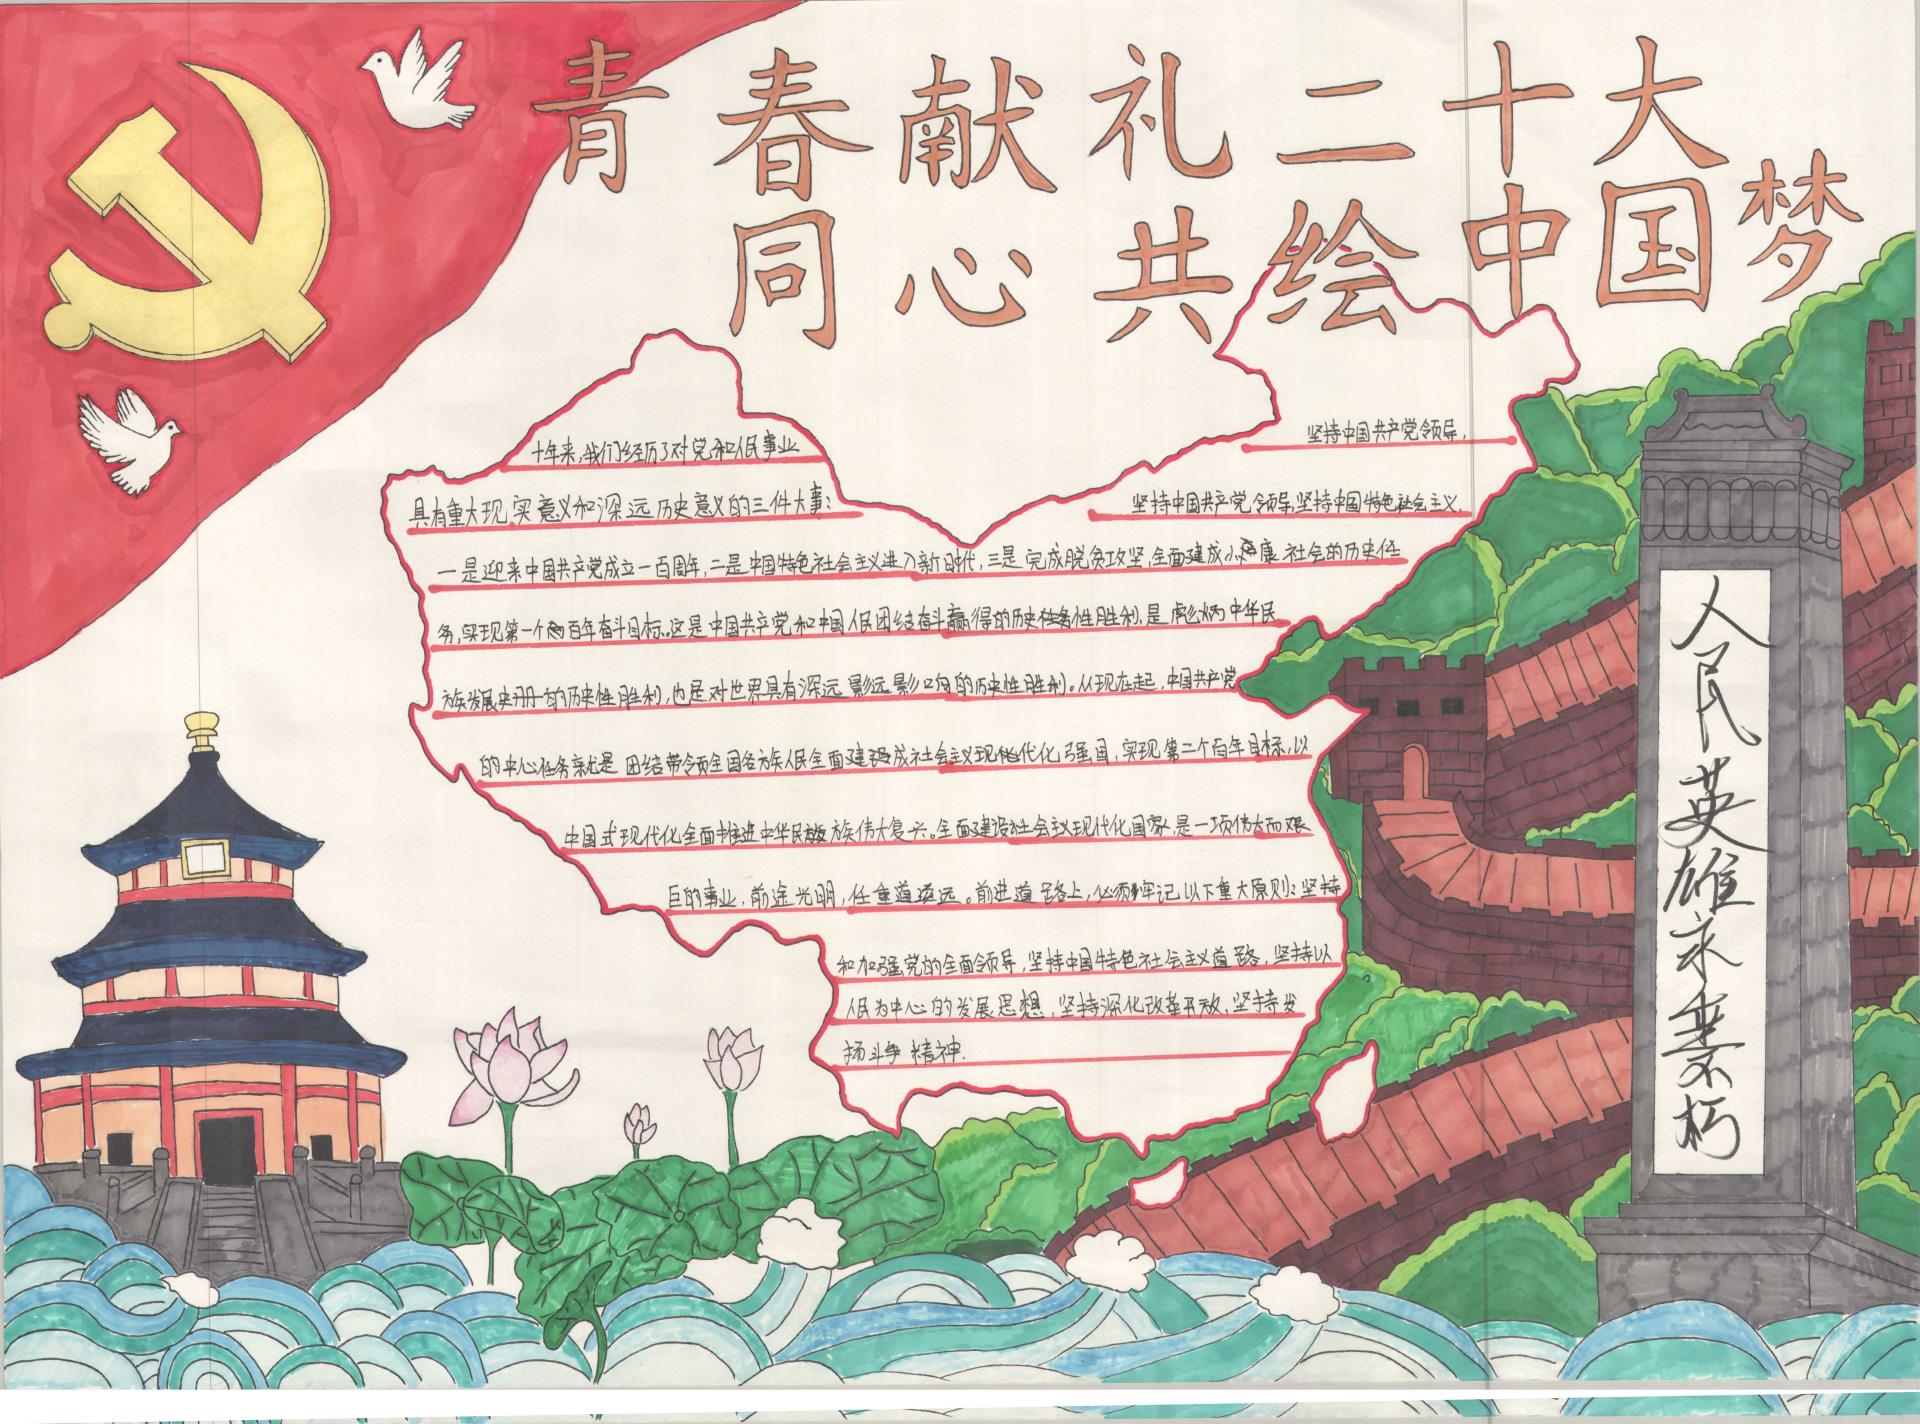 青春献礼二十大
同心共绘中国梦
十年来,我们经历了对党和人民事业
坚持中国共产党领导,
具有重大现实意义和深远历史意义的三件大事:
坚持中国共产党领导,坚持中国特色社会主义,
一是迎来中国共产党成立一百周年,二是中国特色社会主义进入新时代,三是完成脱贫攻坚,全面建成小康社会的历史任
务,实现第一个百年奋斗目标。这是中国共产党和中国人民团结奋斗赢得的历史性胜利,是彪炳中华民
族发展史册的历史性胜利,也是对世界具有深远影远影响的历史性胜利。从现在起,中国共产党
的中心任务就是团结带领全国各族人民全面建成社会主义现代化强国,实现第二个百年目标,以
中国式现代化全面推进中华民族伟大复兴。全面建设社会主义现代化国家,是一项伟大而艰
巨的事业,前途光明,任重道远。前进道路上,必须牢记以下重大原则:坚持
和加强党的全面领导,坚持中国特色社会主义道路,坚持以
人民为中心的发展思想,坚持深化改革开放,坚持发
扬斗争精神.
人民英雄永垂不朽